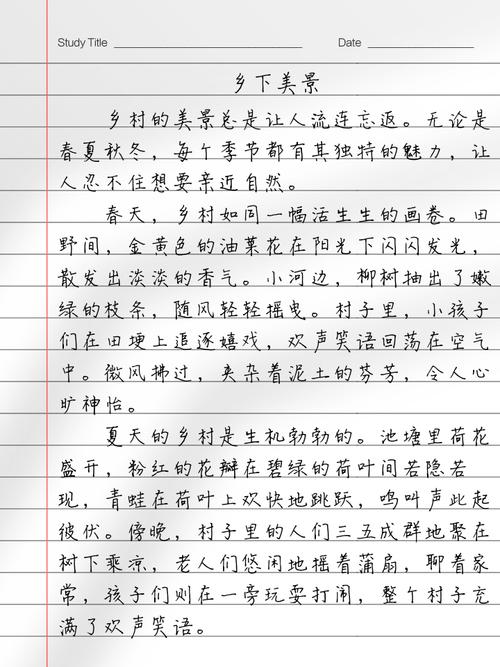 Study Title
Date
乡下美景
乡村的美景总是让人流连忘返。无论是
春夏秋冬，每个季节都有其独特的魅力，让
人忍不住想要亲近自然。
春天，乡村如同一幅活生生的画卷。田
野间，金黄色的油菜花在阳光下闪闪发光，
散发出淡淡的香气。小河边，柳树抽出了嫩
绿的枝条，随风轻轻摇曳。村子里，小孩子
们在田埂上追逐嬉戏，欢声笑语回荡在空气
中。微风拂过，夹杂着泥土的芬芳，令人心
旷神怡。
夏天的乡村是生机勃勃的。池塘里荷花
盛开，粉红的花瓣在碧绿的荷叶间若隐若
现，青蛙在荷叶上欢快地跳跃，鸣叫声此起
彼伏。傍晚，村子里的人们三五成群地聚在
树下乘凉，老人们悠闲地摇着蒲扇，聊着家
常，孩子们则在一旁玩耍打闹，整个村子充
满了欢声笑语。